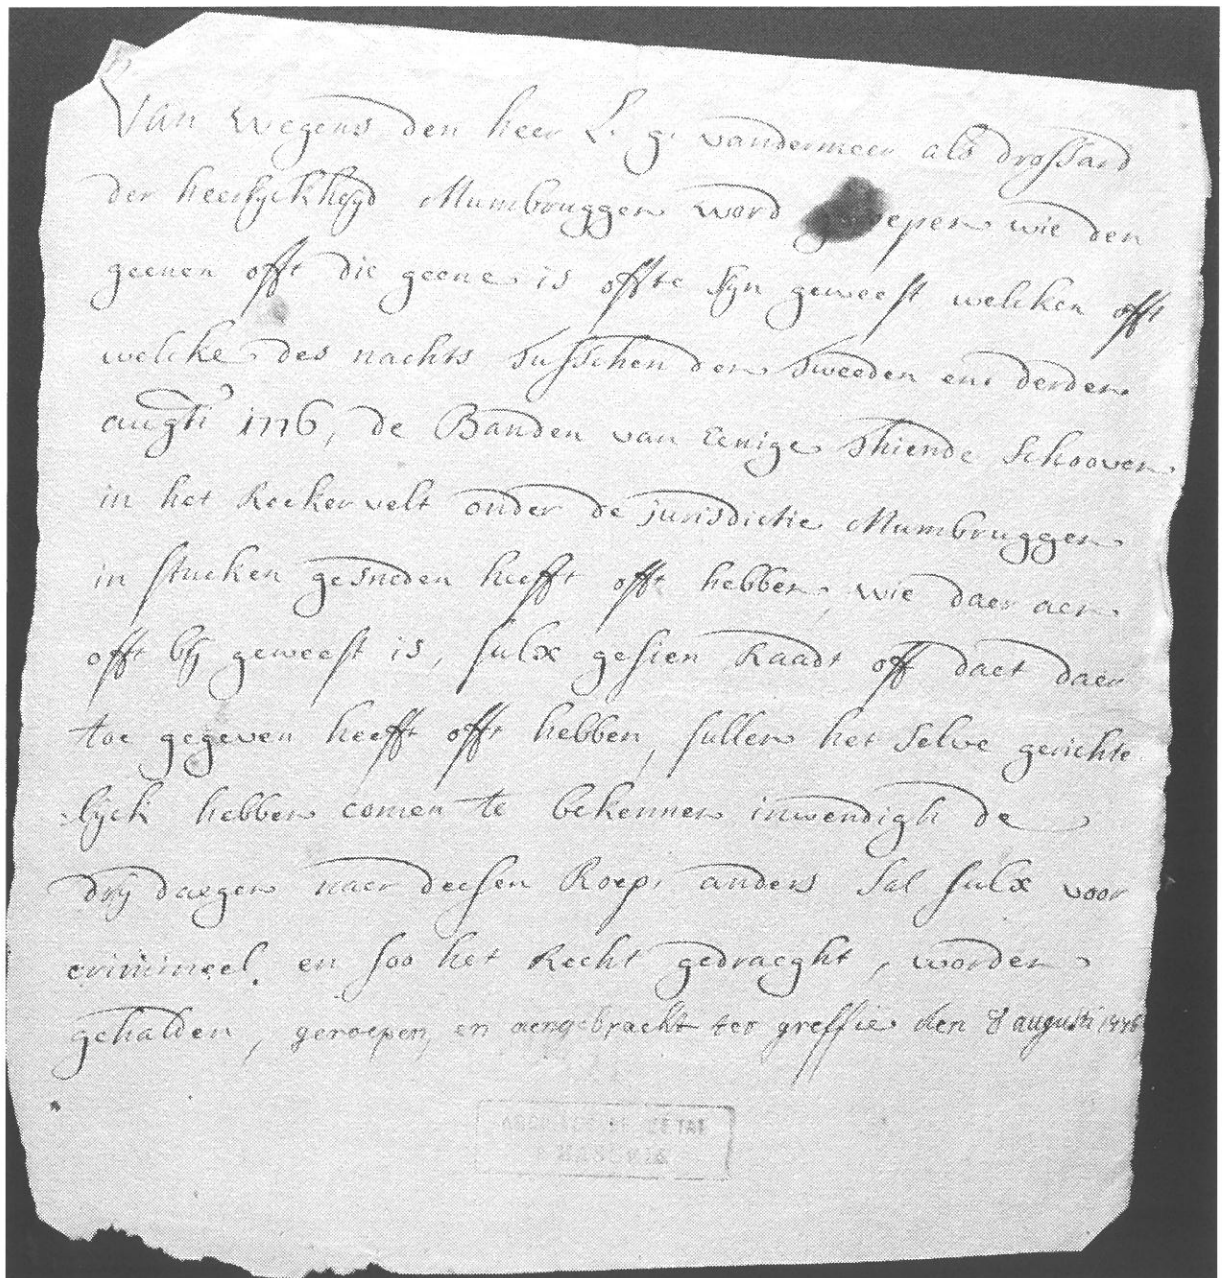 Van Wegens den heer L. g. vandermeer als drossard
der heerlyckheyd Mumbruggen word epen wie den
geenen offt die geene is offte syn geweest welcken offt
welcke des nachts tusschen den tweeden en derden
augti 1776, de Banden van eenige thiende schooven
in het Reekervelt onder de jurisdictie Mumbruggen
in stucken gesneden heefft offt hebben, wie daer aen
offt by geweest is, sulx gesien Raadt off daet daer
toe gegeven heefft offt hebben, sullen het selve gerichte
lyck hebben comen te bekennen inwendigh de
dry daegen naer deesen Roep, anders sal sulx voor
crimineel. en soo het Recht gedraeght, worden
gehalden, geroepen, en aengebracht ter greffie den 8 augusti 1776
ARCHIVES DE L'ETAT
A HASSELT